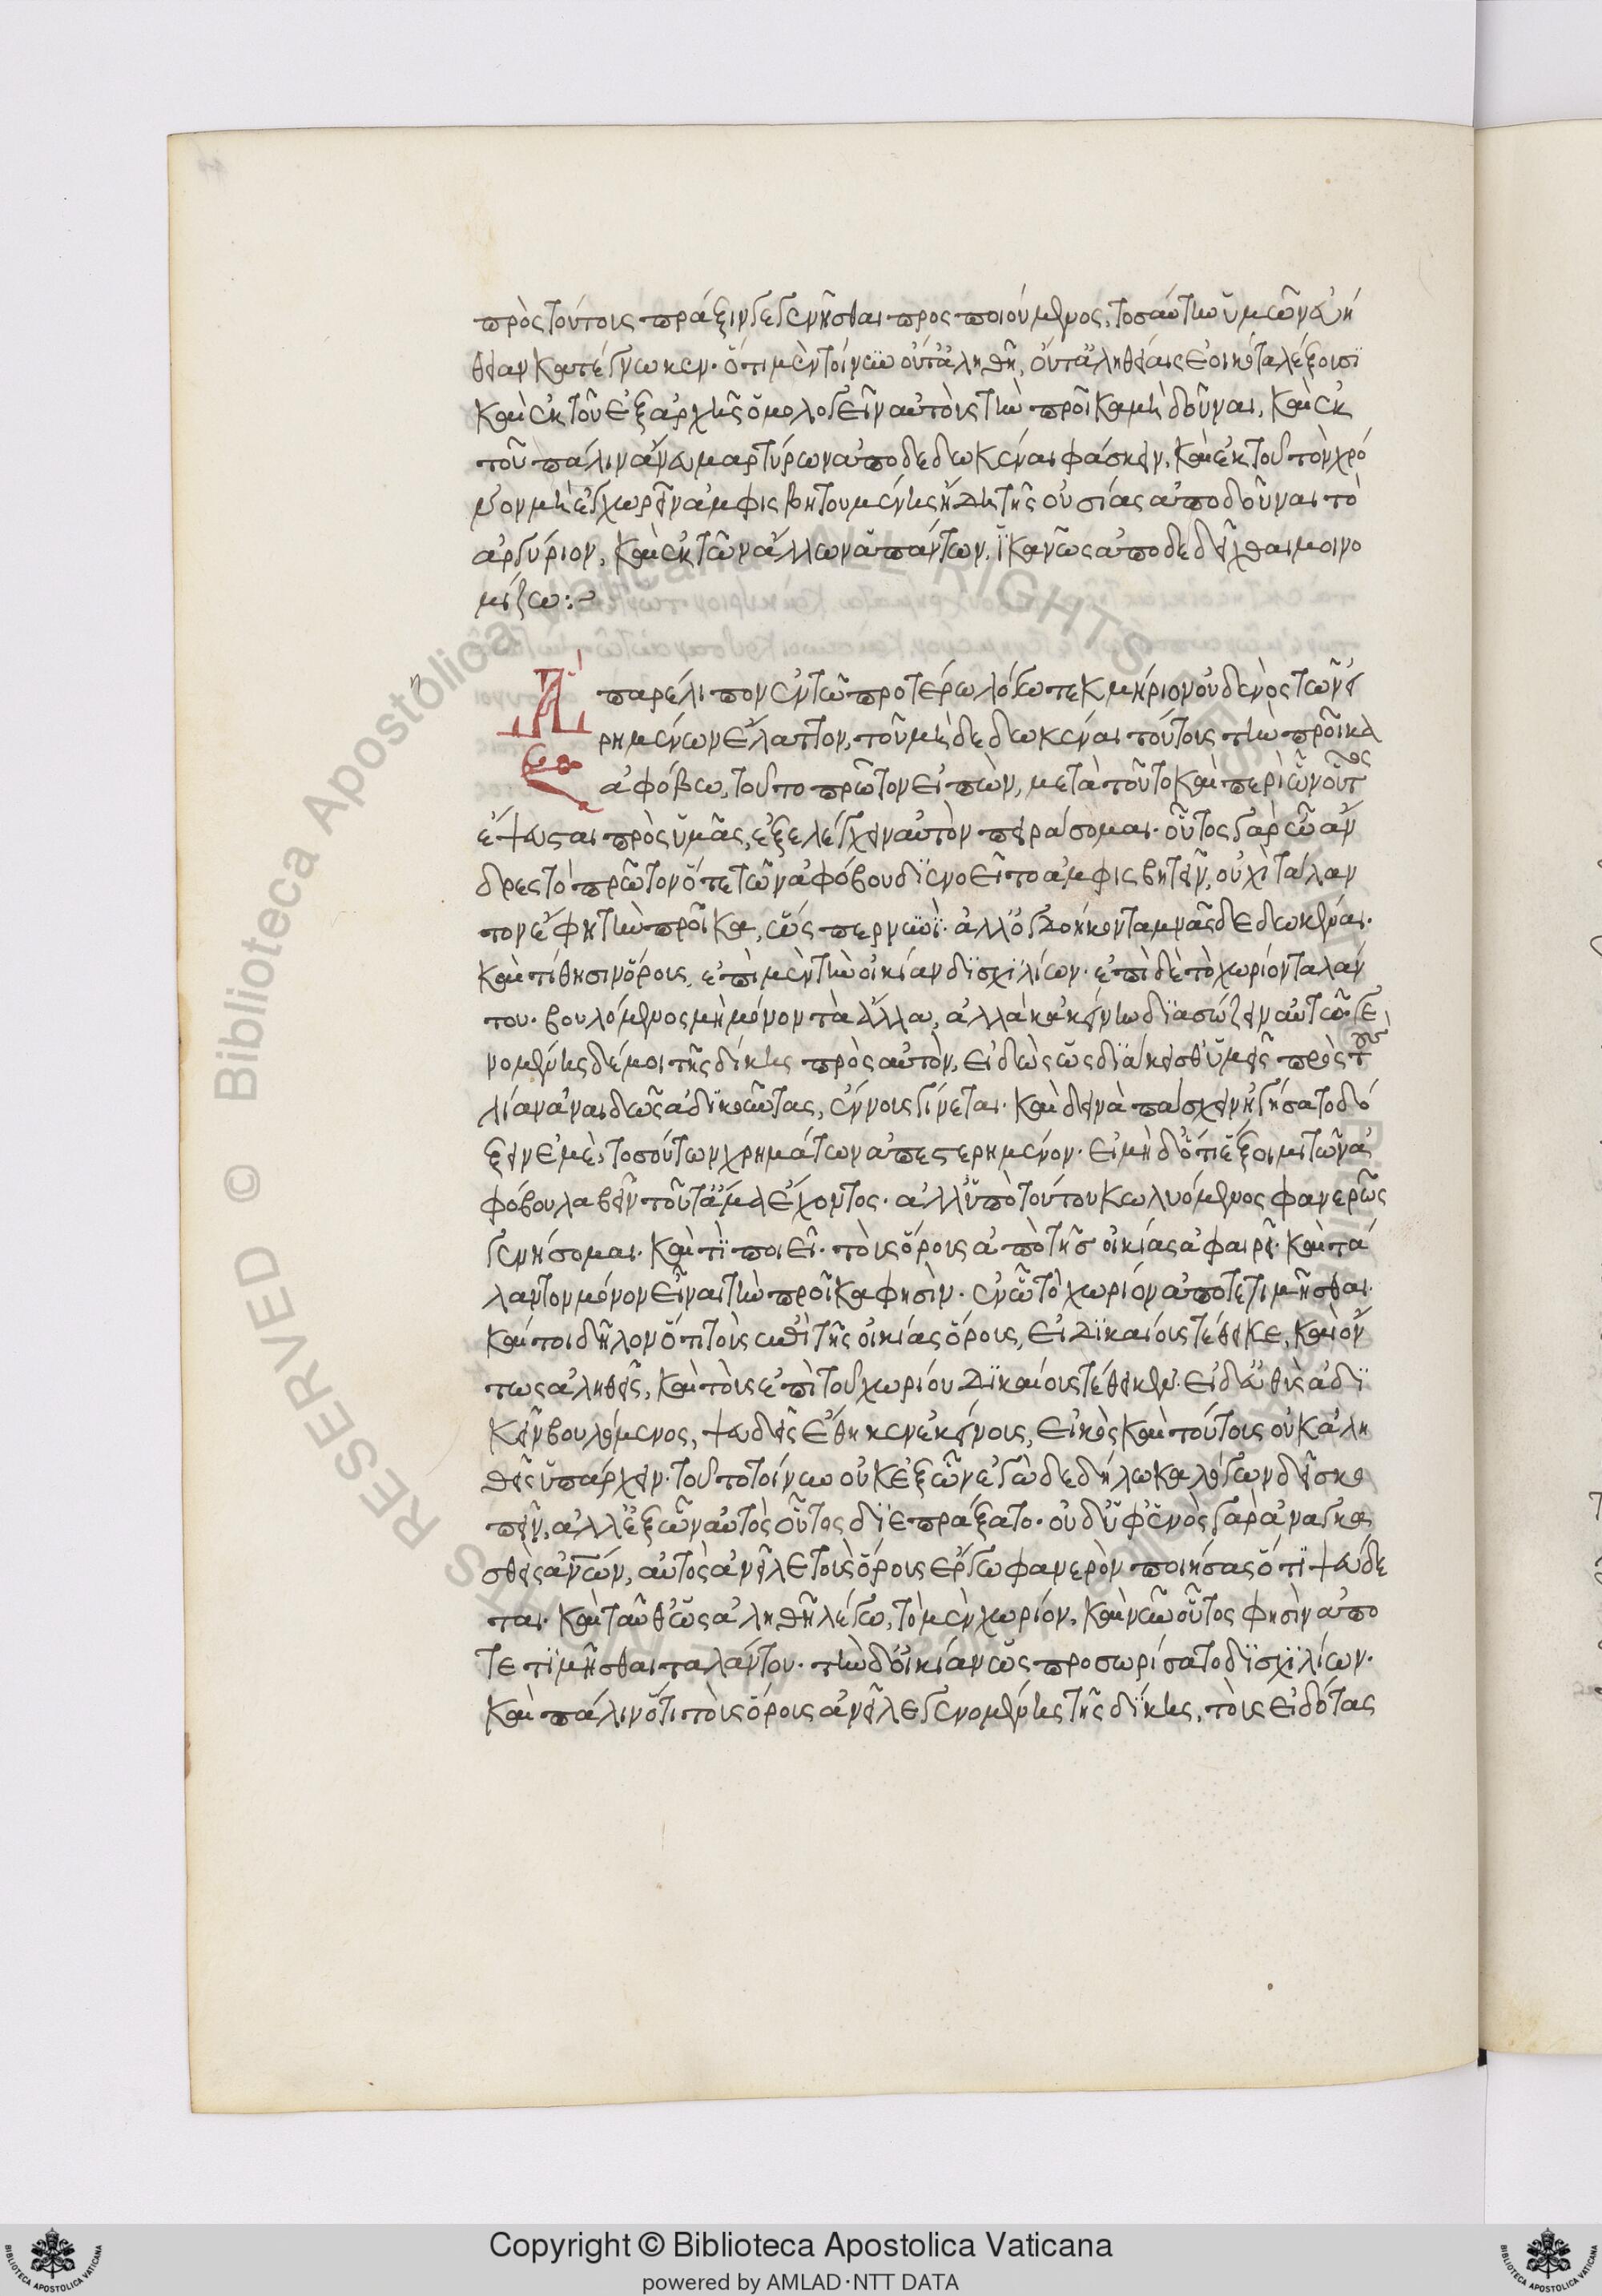 πρὸς τούτοις πρᾶξιν γεγενῆσθαι προσποιούμενος, τοσαύτην ὑμῶν εὐή
θειαν κατέγνωκεν. ὅτι μὲν τοίνυν οὔτ' ἀληθῆ, οὔτ' ἀληθείαις ἐοικότα λέξουσι
καὶ ἐκ τοῦ ἐξ ἀρχῆς ὁμολογεῖν αὐτοὺς τὴν προῖκα μὴ δοῦναι, καὶ ἐκ
τοῦ πάλιν ἄνευ μαρτύρων ἀποδεδωκέναι φάσκειν, καὶ ἐκ τοῦ τὸν χρό
νον μὴ ἐγχωρεῖν ἀμφισβητουμένης ἤδη τῆς οὐσίας ἀποδοῦναι τὸ
ἀργύριον, καὶ ἐκ τῶν ἄλλων ἁπάντων, ἱκανῶς ἀποδεδεῖχθαι μοι νο
μίζω:
Ἃ παρέλιπον ἐν τῶ προτέρω λόγω τεκμήριον οὐδενὸς τῶν εἰ
ρημένων ἔλαττον, τοῦ μὴ δεδωκέναι τούτοις τὴν προῖκα
ἀφόβω, τοῦτο πρῶτον εἰπὼν, μετὰ τοῦτο καὶ περὶ ὧν οὗτος
ἔψευσται πρὸς ὑμᾶς, ἐξελέγχειν αὐτὸν πειράσομαι. οὗτος γὰρ ὦ ἄν
δρες τὸ πρῶτον ὅτε τῶν ἀφόβου διενοεῖτο ἀμφισβητεῖν, οὐχὶ τάλαν
τον ἔφη τὴν προῖκα, ὥσπερ νυνὶ. ἀλλ' ὀγδοήκοντα μνᾶς δεδωκέναι.
καὶ τίθησιν ὅρους, ἐπὶ μὲν τὴν οἰκίαν δισχιλίων. ἐπὶ δὲ τὸ χωρίον ταλάν
του. βουλόμενος μὴ μόνον τὰ ἄλλα, ἀλλὰ κἀκείνην διασώζειν αὐτῶ. γε
νομένης δέ μοι τῆς δίκης πρὸς αὐτὸν, εἰδὼς ὡς διάκεισθ' ὑμεῖς πρὸς τοὺς
λίαν ἀναιδῶς ἀδικοῦντας, ἔννους γίνεται. καὶ δεινὰ πάσχειν ἡγήσατο δό
ξειν ἐμὲ, τοσούτων χρημάτων ἀπεστερημένον. εἰ μὴ δ' ὅτι ἕξοιμι τῶν ἀ
φόβου λαβεῖν τοῦ τἄμ' ἔχοντος. ἀλλ' ὑπὸ τούτου κωλυόμενος φανερῶς
γενήσομαι. καὶ τί ποιεῖ. τοὺς ὅρους ἀπὸ τῆς οἰκίας ἀφαιρεῖ. καὶ τά
λαντον μόνον εἶναι τὴν προῖκα φησὶν. ἐν ὧ τὸ χωρίον ἀποτετιμῆσθαι.
καίτοι δῆλον ὅτι τοὺς ἐπὶ τῆς οἰκίας ὅρους, εἰ δικαίους τέθεικε, καὶ ὄν
τως ἀληθεῖς, καὶ τοὺς ἐπὶ τοῦ χωρίου δικαίους τέθεικεν. εἰ δ' εὐθὺς ἀδι
κεῖν βουλόμενος, ψευδεῖς ἔθηκεν ἐκείνους, εἰκὸς καὶ τούτους οὐκ ἀλη
θεῖς ὑπάρχειν. τοῦτο τοίνυν οὐκ ἐξ ὧν ἐγὼ δεδήλωκα λόγων δεῖ σκο
πεῖν, ἀλλ' ἐξ ὧν αὐτὸς οὗτος διεπράξατο. οὐδ' ὑφ' ἑνὸς γὰρ ἀναγκα
σθεὶς ἀνθρώπων, αὐτὸς ἀνεῖλε τοὺς ὅρους ἔργω φανερὸν ποιήσας ὅτι ψεύδε
ται. καὶ ταῦθ' ὡς ἀληθῆ λέγω, τὸ μὲν χωρίον, καὶ νῦν οὗτος φησὶν ἀπο
τετιμῆσθαι ταλάντου. τὴν δ' οἰκίαν ὡς προσωρίσατο δισχιλίων.
καὶ πάλιν ὅτι τοὺς ὅρους ἀνεῖλε γενομένης τῆς δίκης, τοὺς εἰδότας
RESERVED © Biblioteca Apostolica Vaticana ALL RIGHTS RESERVED
Copyright © Biblioteca Apostolica Vaticana
powered by AMLAD·NTT DATA